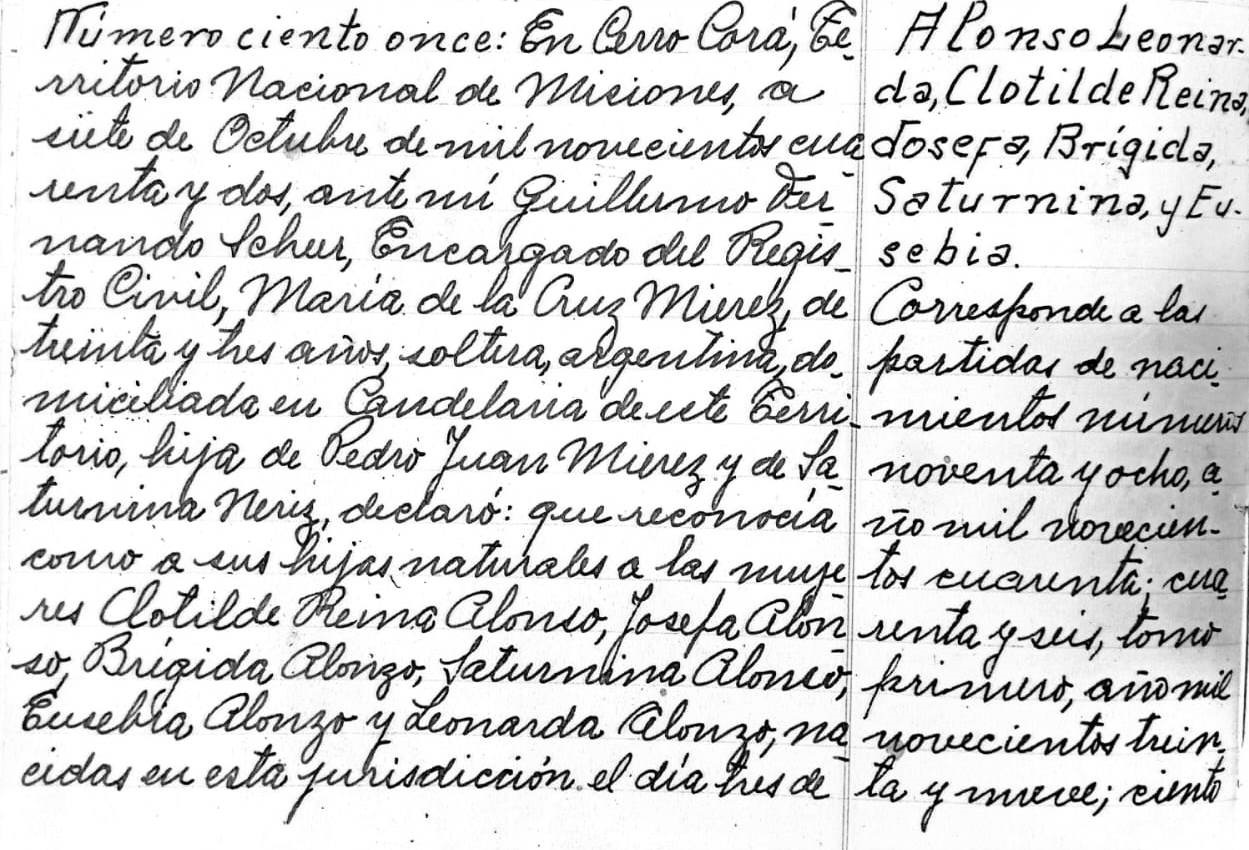 Número ciento once: En Cerro Corá, Te-
rritorio Nacional de Misiones, a
siete de Octubre de mil novecientos cua
renta y dos, ante mí Guillermo Fer-
nando Scheer, Encargado del Regis-
tro Civil, María de la Cruz Mierez, de
treinta y tres años, soltera, argentina, do-
miciliada en Candelaria de este Terri-
torio, hija de Pedro Juan Mierez y de Sa-
turnina Neriz, declaró: que reconocía
como a sus hijas naturales a las muje-
res Clotilde Reina Alonso, Josefa Alon
so, Brígida Alonzo, Saturnina Alonso,
Eusebia Alonzo y Leonarda Alonzo, na-
cidas en esta jurisdicción el día tres de
Alonso Leonar-
da, Clotilde Reina,
Josefa, Brígida,
Saturnina, y Eu-
sebia.
Corresponde a las
partidas de naci-
mientos números
noventa y ocho, a-
ño mil novecien-
tos cuarenta; cua-
renta y seis, tomo
primero, año mil
novecientos trein-
ta y nueve; ciento